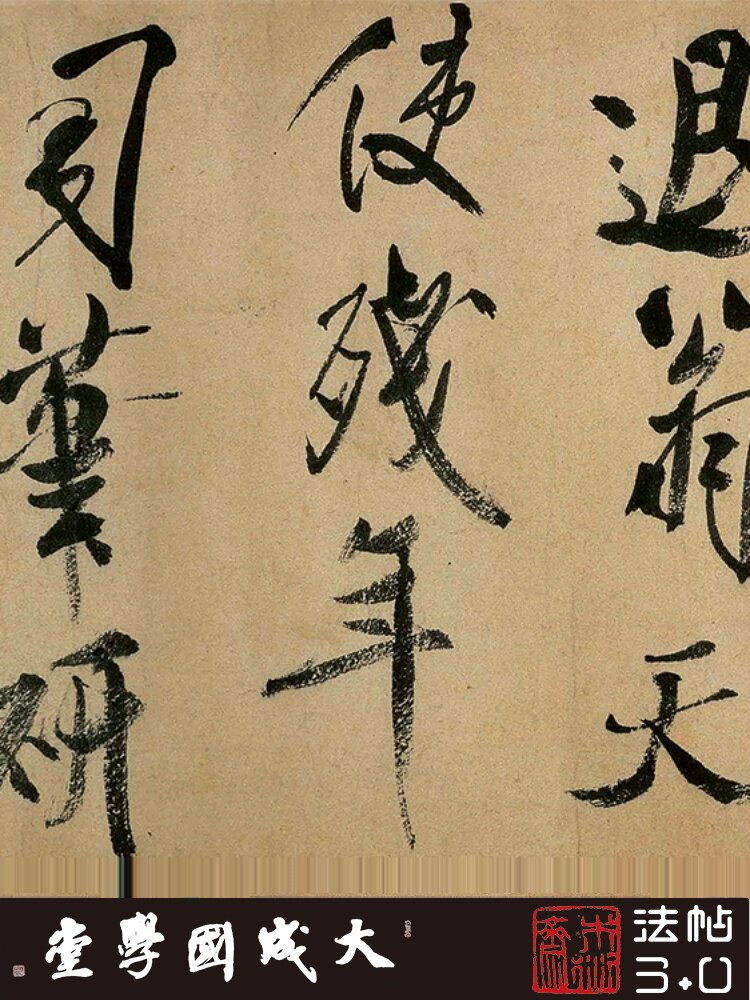 退翁天
使殘年
司筆研
大成國學堂
法帖
3.0